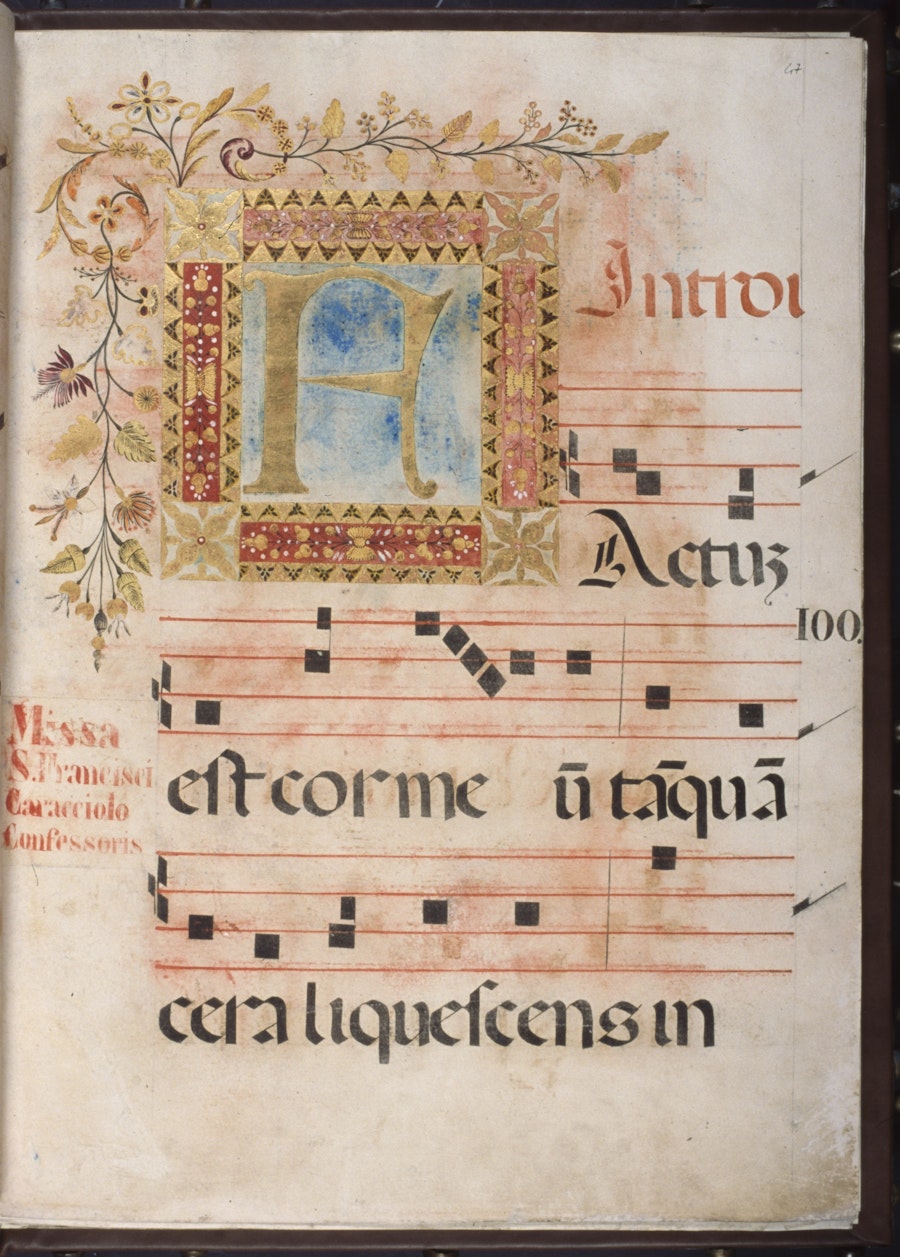 47
F
Introi
Actuz
100.
est cor me ū tāquā
Missa
S. Francisci
Caracciolo
Confessoris
cera liquescens in